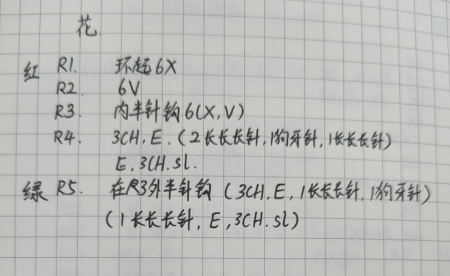 花
红 R1. 环起6X
R2 6V
R3. 内半针钩6(X,V)
R4. 3CH,E,(2长长长针,1狗牙针,1长长长针)
E,3CH.sl.
绿 R5. 在R3外半针钩(3CH,E,1长长长针,1狗牙针)
(1长长长针,E,3CH.sl)